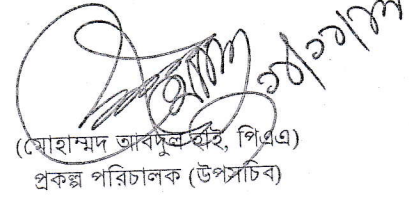 (মোহাম্মদ আবদুল হাই, পিএএ)
প্রকল্প পরিচালক (উপসচিব)